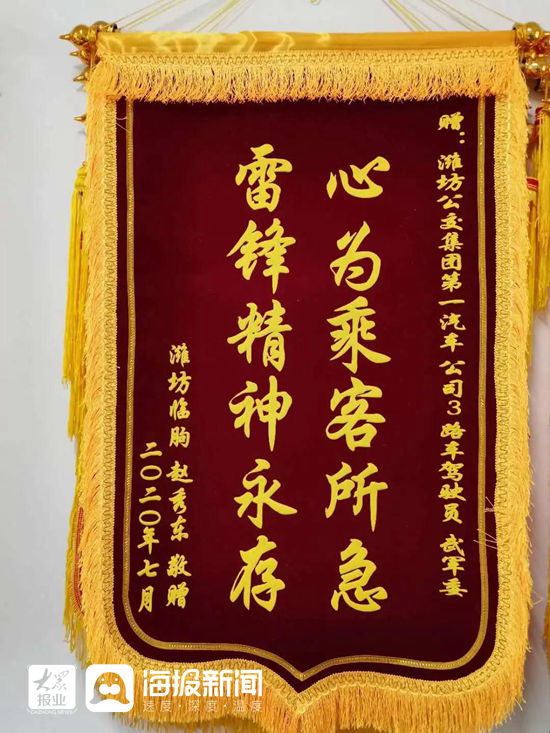 赠：潍坊公交集团第一汽车公司3路车驾驶员 武军委
心为乘客所急
雷锋精神永存
潍坊临朐 赵秀东 敬赠
二〇二〇年七月
大众
报业
DAZHONG NEWS
海报新闻
速度·深度·温度